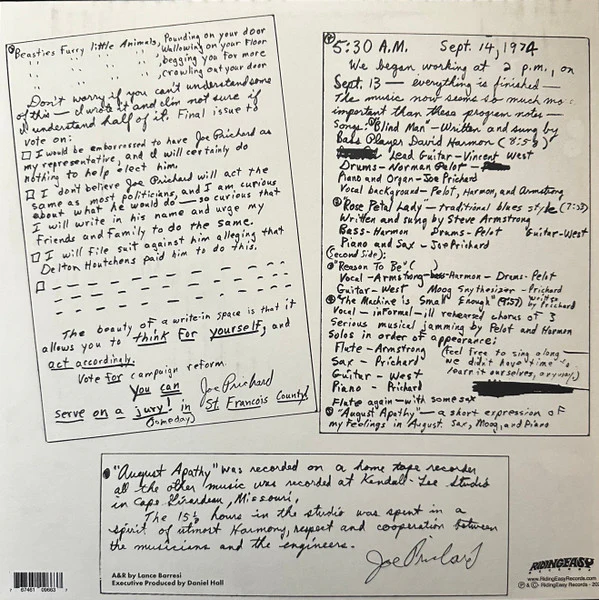 Beasties Furry little Animals, Pounding on your door
" " " " Wallowing on your Floor
" " " " begging you for more
" " " " crawling out your door
Don't worry if you can't understand some
of this — I wrote it and I'm not sure if
I understand half of it. Final issue to
vote on:
□ I would be embarrossed to have Joe Prichard as
my representative, and I will certainly do
nothing to help elect him.
□ I don't believe Joe Prichard will act the
same as most politicians, and I am curious
about what he would do — so curious that
I will write in his name and urge my
Friends and Family to do the same.
□ I will file suit against him alleging that
Delton Houtchens paid him to do this.
□
The beauty of a write-in space is that it
allows you to think for yourself, and
act accordingly.
Vote for campaign reform
You can
serve on a jury! in
(someday)
Joe Prichard
St. Francois County
5:30 A.M. Sept. 14, 1974
We began working at 2 p.m., on
Sept. 13 — everything is finished —
The music now seems so much mo
important than these program notes —
Songs: "Blind Man" — Written and sung by
Bass Player David Harmon (8:53)
Lead Guitar - Vincent West
Drums - Norman Pelot —
Piano and Organ - Joe Prichard
Vocal background - Pelot, Harmon, and Armstrong
"Rose Petal Lady — traditional blues style (7:33)
Written and sung by Steve Armstrong
Bass - Harmon Drums - Pelot Guitar - West
Piano and Sax - Joe Prichard
(second side):
"Reason To Be" ( )
Vocal - Armstrong - bass - Harmon - Drums - Pelot
Guitar - West Moog Snythesizer - Prichard
"The Machine is Small Enough" (9:57) written by Prichard
Vocal — informal — ill rehearsed chorus of 3
Serious musical jamming by Pelot and Harmon
Solos in order of appearance:
Flute - Armstrong (feel free to sing along —
Sax - Prichard we didn't have time to
Guitar - West learn it ourselves, anyway.)
Piano - Prichard
Flute again — with some sax
"August Apathy" — a short expression of
my feelings in August. Sax, Moog, and Piano
"August Apathy" was recorded on a home tape recorder
all the other music was recorded at Kendall-Lee Studio
in Cape Girardeau, Missouri.
The 15½ hours in the studio was spent in a
spirit of utmost Harmony, respect and cooperation between
the musicians and the engineers.
Joe Prichard
A&R by Lance Barresi
Executive Produced by Daniel Hall
7 67461 09663 7
RIDINGEASY
RECORDS
www.RidingEasyRecords.com
℗ & © - RidingEasy Records - 202